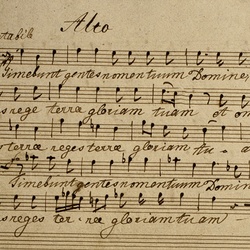 Alto
tabile
Timebunt gentes nomen tuum Domine
reges terræ gloriam tuam et om
terræ reges terræ gloriam tu - a
Timebunt gentes nomen tuum Domin
reges ter - ræ gloriam tuam -